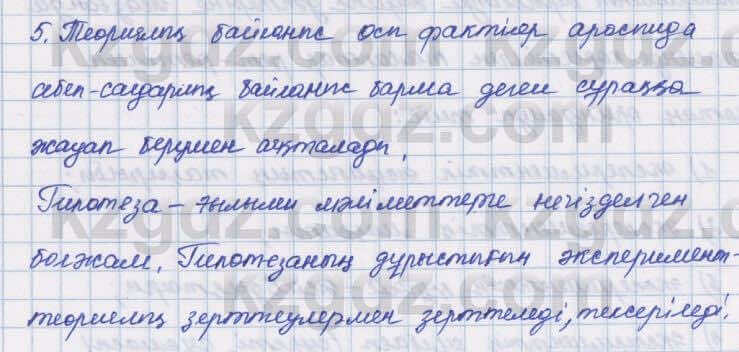 5. Теориялық байланыс осы фактілер арасында
себеп-салдарлық байланыс барма деген сұраққа
жауап берумен аяқталады.
Гипотеза – ғылыми мәліметтерге негізделген
болжам. Гипотезаның дұрыстығын эксперимент-
теориялық зерттеулермен зерттеледі, тексеріледі.
kzgdz.com